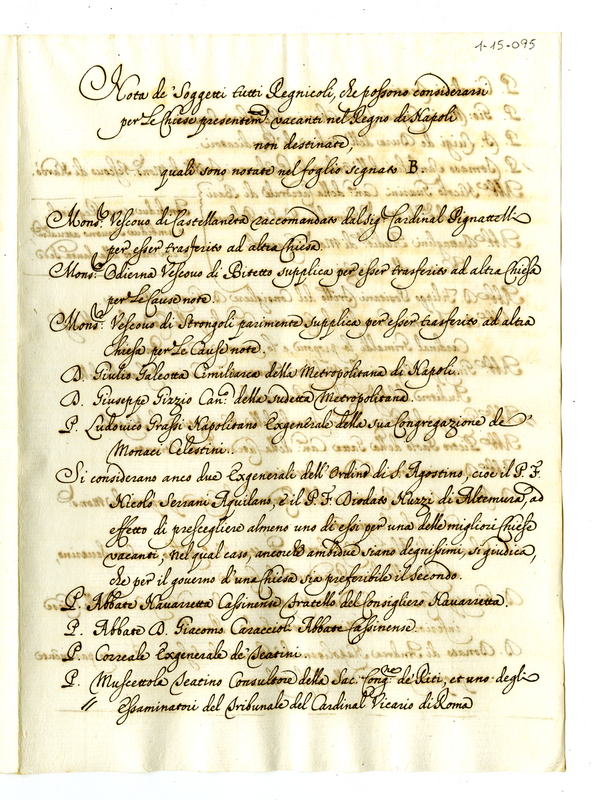 1-15-095
Nota de' Soggetti tutti Regnicoli, che possono considerarsi
per Le Chiese presentem.te vacanti nel Regno di Napoli
non destinate,
quali sono notate nel foglio segnato B.
Mons.r Vescouo di Castellaneta raccomandato dal sig.r Cardinal Pignattelli
per esser trasferito ad altra Chiesa
Mons.r Odierna Vescouo di Bitetto supplica per esser trasferito ad altra Chiesa
per Le Cause note.
Mons.r Vescouo di Strongoli parimente supplica per esser trasferito ad altra
Chiesa per Le Cause note.
D. Giulio Galeotta Cimiliarca della Metropolitana di Napoli.
D. Giuseppe Pizzio Can.co della sudetta Metropolitana.
P. Ludovico Grassi Napolitano Exgenerale della sua Congregazione de'
Monaci Celestini.
Si considerano anco due Exgenerali dell' Ordine di S. Agostino, cioè il P. F.
Nicolo Serrani Aquilano, e il P. F. Diodato Nuzzi di Altemura, ad
effetto di prescegliere almeno uno di essi per una delle migliori Chiese
vacanti; Nel qual caso, ancorche ambidue siano degnissimi, si giudica,
che per il governo d'una Chiesa sia preferibile il secondo.
P. Abbate Navarretta Cassinense fratello del Consigliere Navarretta.
P. Abbate D. Giacomo Caraccioli Abbate Cassinense.
P. Correale Exgenerale de' Teatini.
P. Muscettola Teatino Consultore della Sac. Cong.ne de' Riti, et uno degli
// Essaminatori del Tribunale del Cardinal Vicario di Roma